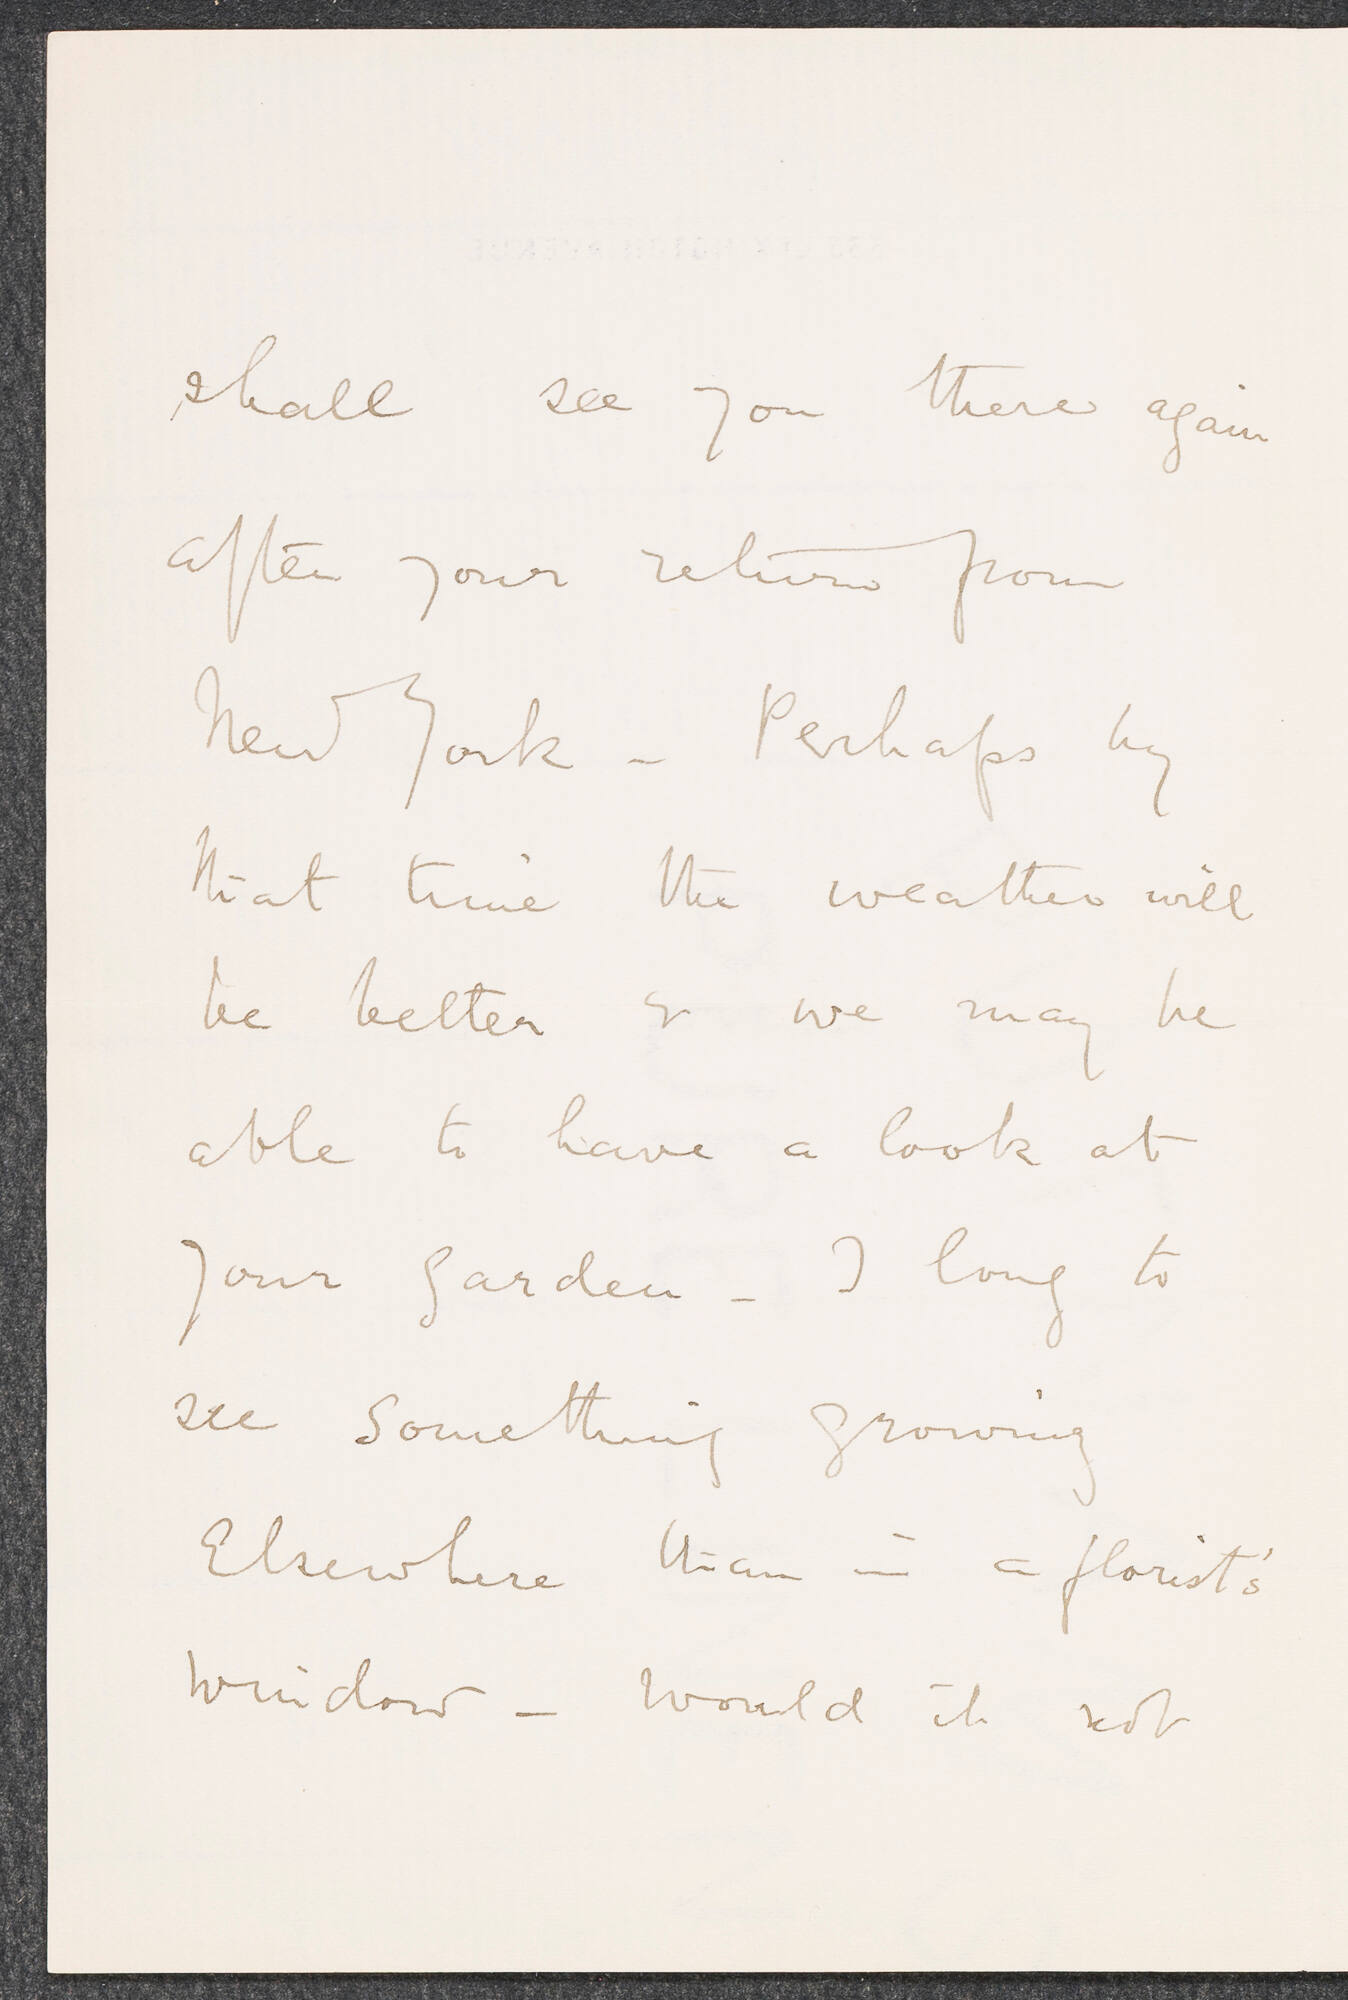 shall see you there again
after your return from
New York – Perhaps by
that time the weather will
be better & we may be
able to have a look at
your garden – I long to
see something growing
Elsewhere than in a florist's
window – Would it not